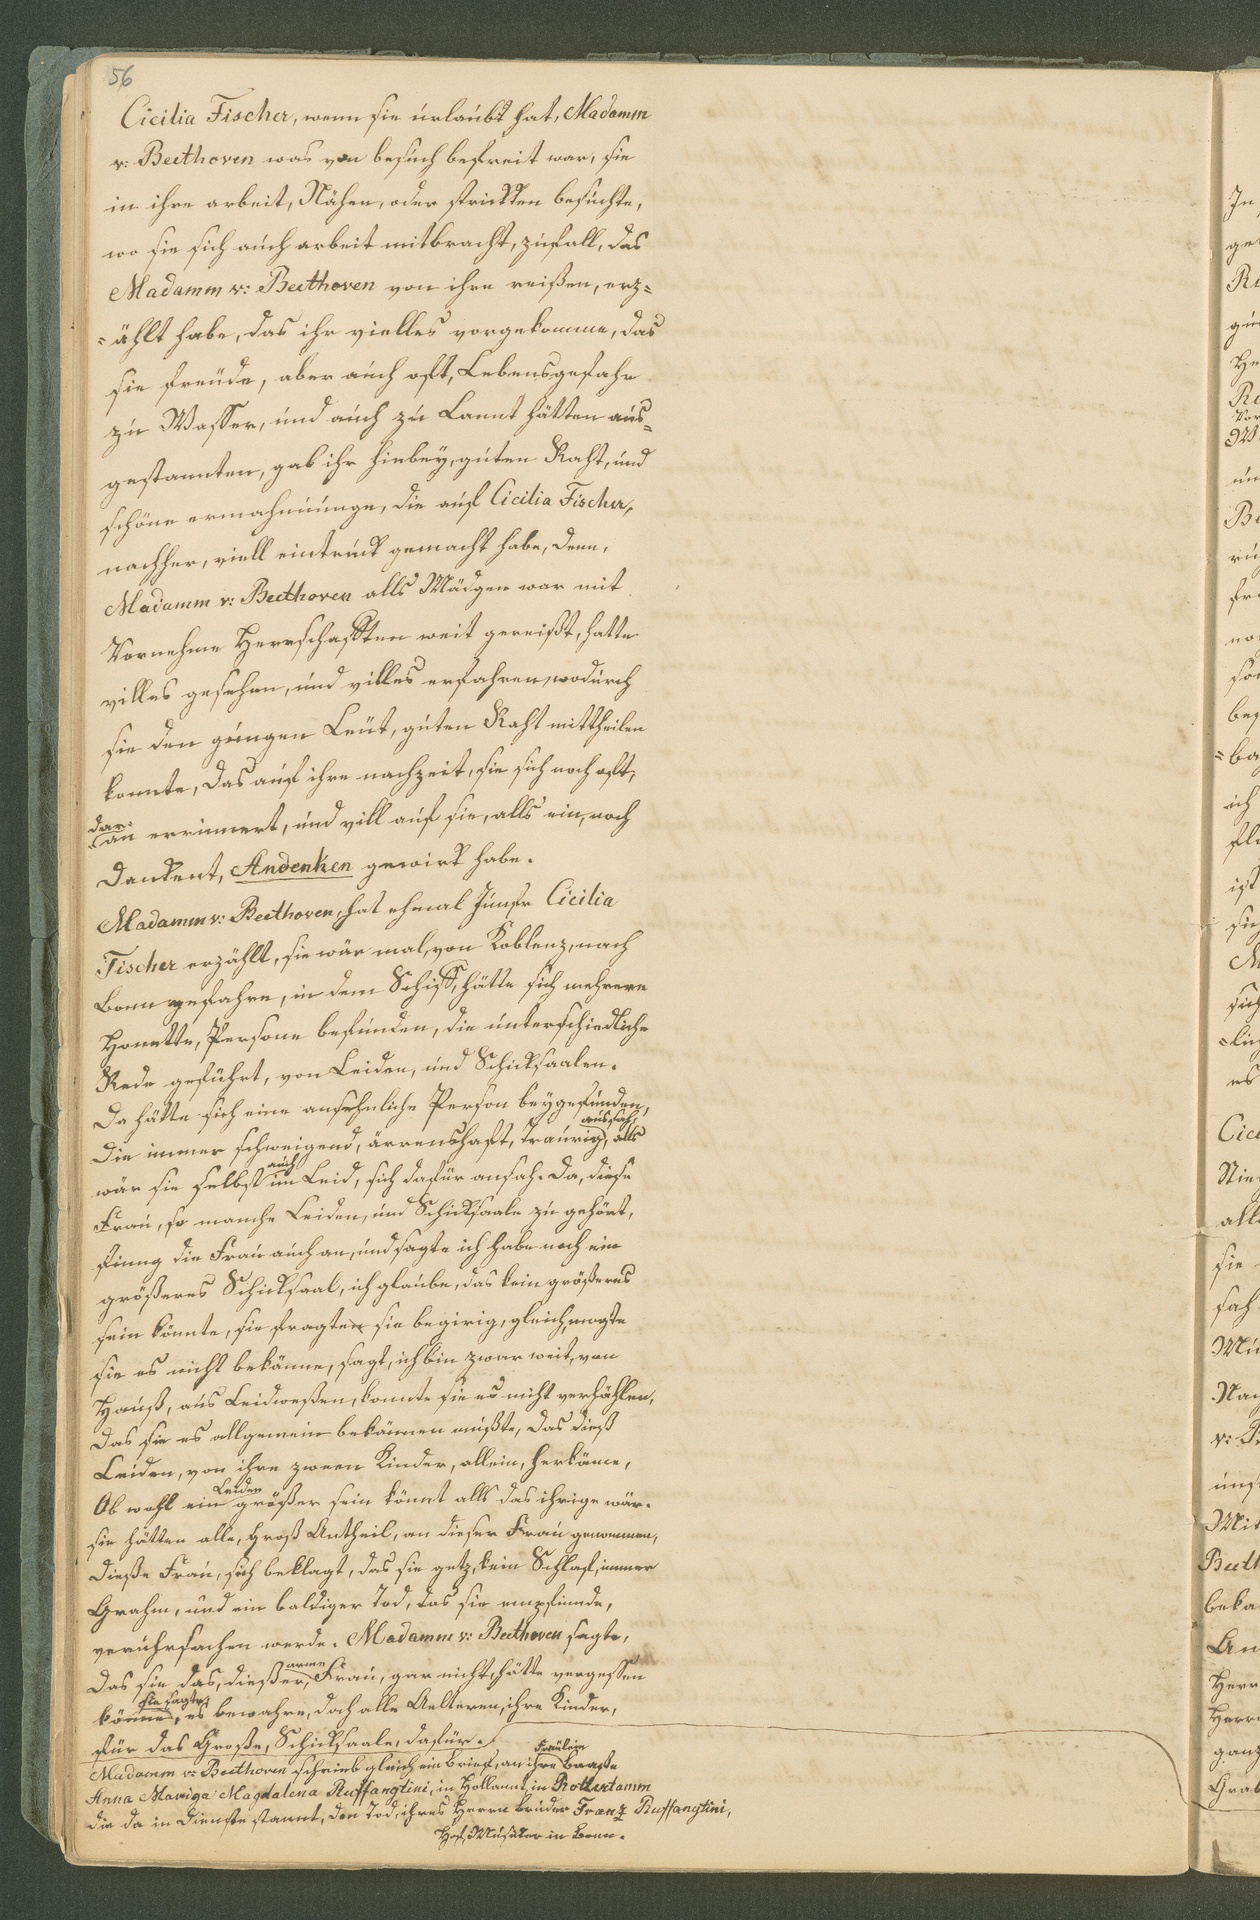 56
Cicilia Fischer, wenn sie urlaubt hat, Madamm
v: Beethoven was von besuch befreit war, sie
in ihre arbeit, Nähen, oder strickten besuchte,
wo sie sich auch arbeit mitbracht, zufall, das
Madamm v: Beethoven von ihre reißen, erz=
=ählt habe, das ihr vielles vorgekomme, das
sie freüde, aber auch oft, Lebensgefahr
zu Wasser, und auch zu Lannt hätten aus=
gestannten, gab ihr hinbey, guten Raht, und
schöne ermahnunge, die auf Cicilia Fischer,
nachher, viell eintruck gemacht habe, denn,
Madamm v: Beethoven alls Mädgen war mit
Vornehme Herrschafften weit gereißt, hatte
villes gesehen, und villes erfahren, wodurch
sie den gungen Leüt, guten Raht mittheilen
konnte, das auf ihre nachzeit, sie sich noch oft,
dar=
=an errinnert, und vill auf sie, alls ein, noch
Dankent, Andenken gewirk habe.
Madamm v: Beethoven, hat ehmal Junfr Cicilia
Fischer erzählt, sie wär mal, von Koblenz, nach
Bonn gefahre, in dem Schiff, hätte sich mehrere
Honette, Persone befunden, die unterschiedliche
Rede geführt, von Leiden, und Schicksaalen.
Da hätte sich eine ansehnliche Person beygefunden,
aussah,
Die immer schweigend, ärrenshaft, Traurig, alls
auch
wär sie selbst im Leid, sich dafür ansah. Da, diese
Frau, so manche Leiden, und Schicksaale zu gehört,
finng die Frau auch an, und sagte ich habe noch ein
größeres Schicksaal, ich glaube, das kein größeres
sein könnte, sie fragten sie begirig, gleich, mogte
sie es nicht bekänne, sagt, ich bin zwar weit, von
Hauß, aus Leidweßen, konnte sie es nicht verhählen,
Das sie es allgemein bekännen müßte, das dieß
Leiden, von ihre zween Kinder, allein, herkäme,
Leiden
Ob wohl ein größer sein könnt alls das ihrige wär.
sie hätten alle, Groß Antheil, an dieser Frau genommen,
Dieße Frau, sich beklagt, das sie getz, kein Schlaf, immer
Grahm, und ein baldiger Tod, das sie empfinnde,
veruhrsachen werde. Madamm v: Beethoven sagte,
arme
Das sie das, dießer, Frau, gar nicht, hätte vergessen
sie sagte
könne, es bewahre, doch alle Aelteren, ihre Kinder,
für das Große, Schicksaale, dafür.
Fräulein
Madamm v: Beethoven schrieb gleich ein Brief, an ihre Baaße
Anna Mariga Magdalena Ruffangtini, in Hollannt, in Rottertamm
die da in Dienste stannt, den Tod, ihres Herrn Bruder Franz Ruffangtini,
Hof, Musiker in Bonn.